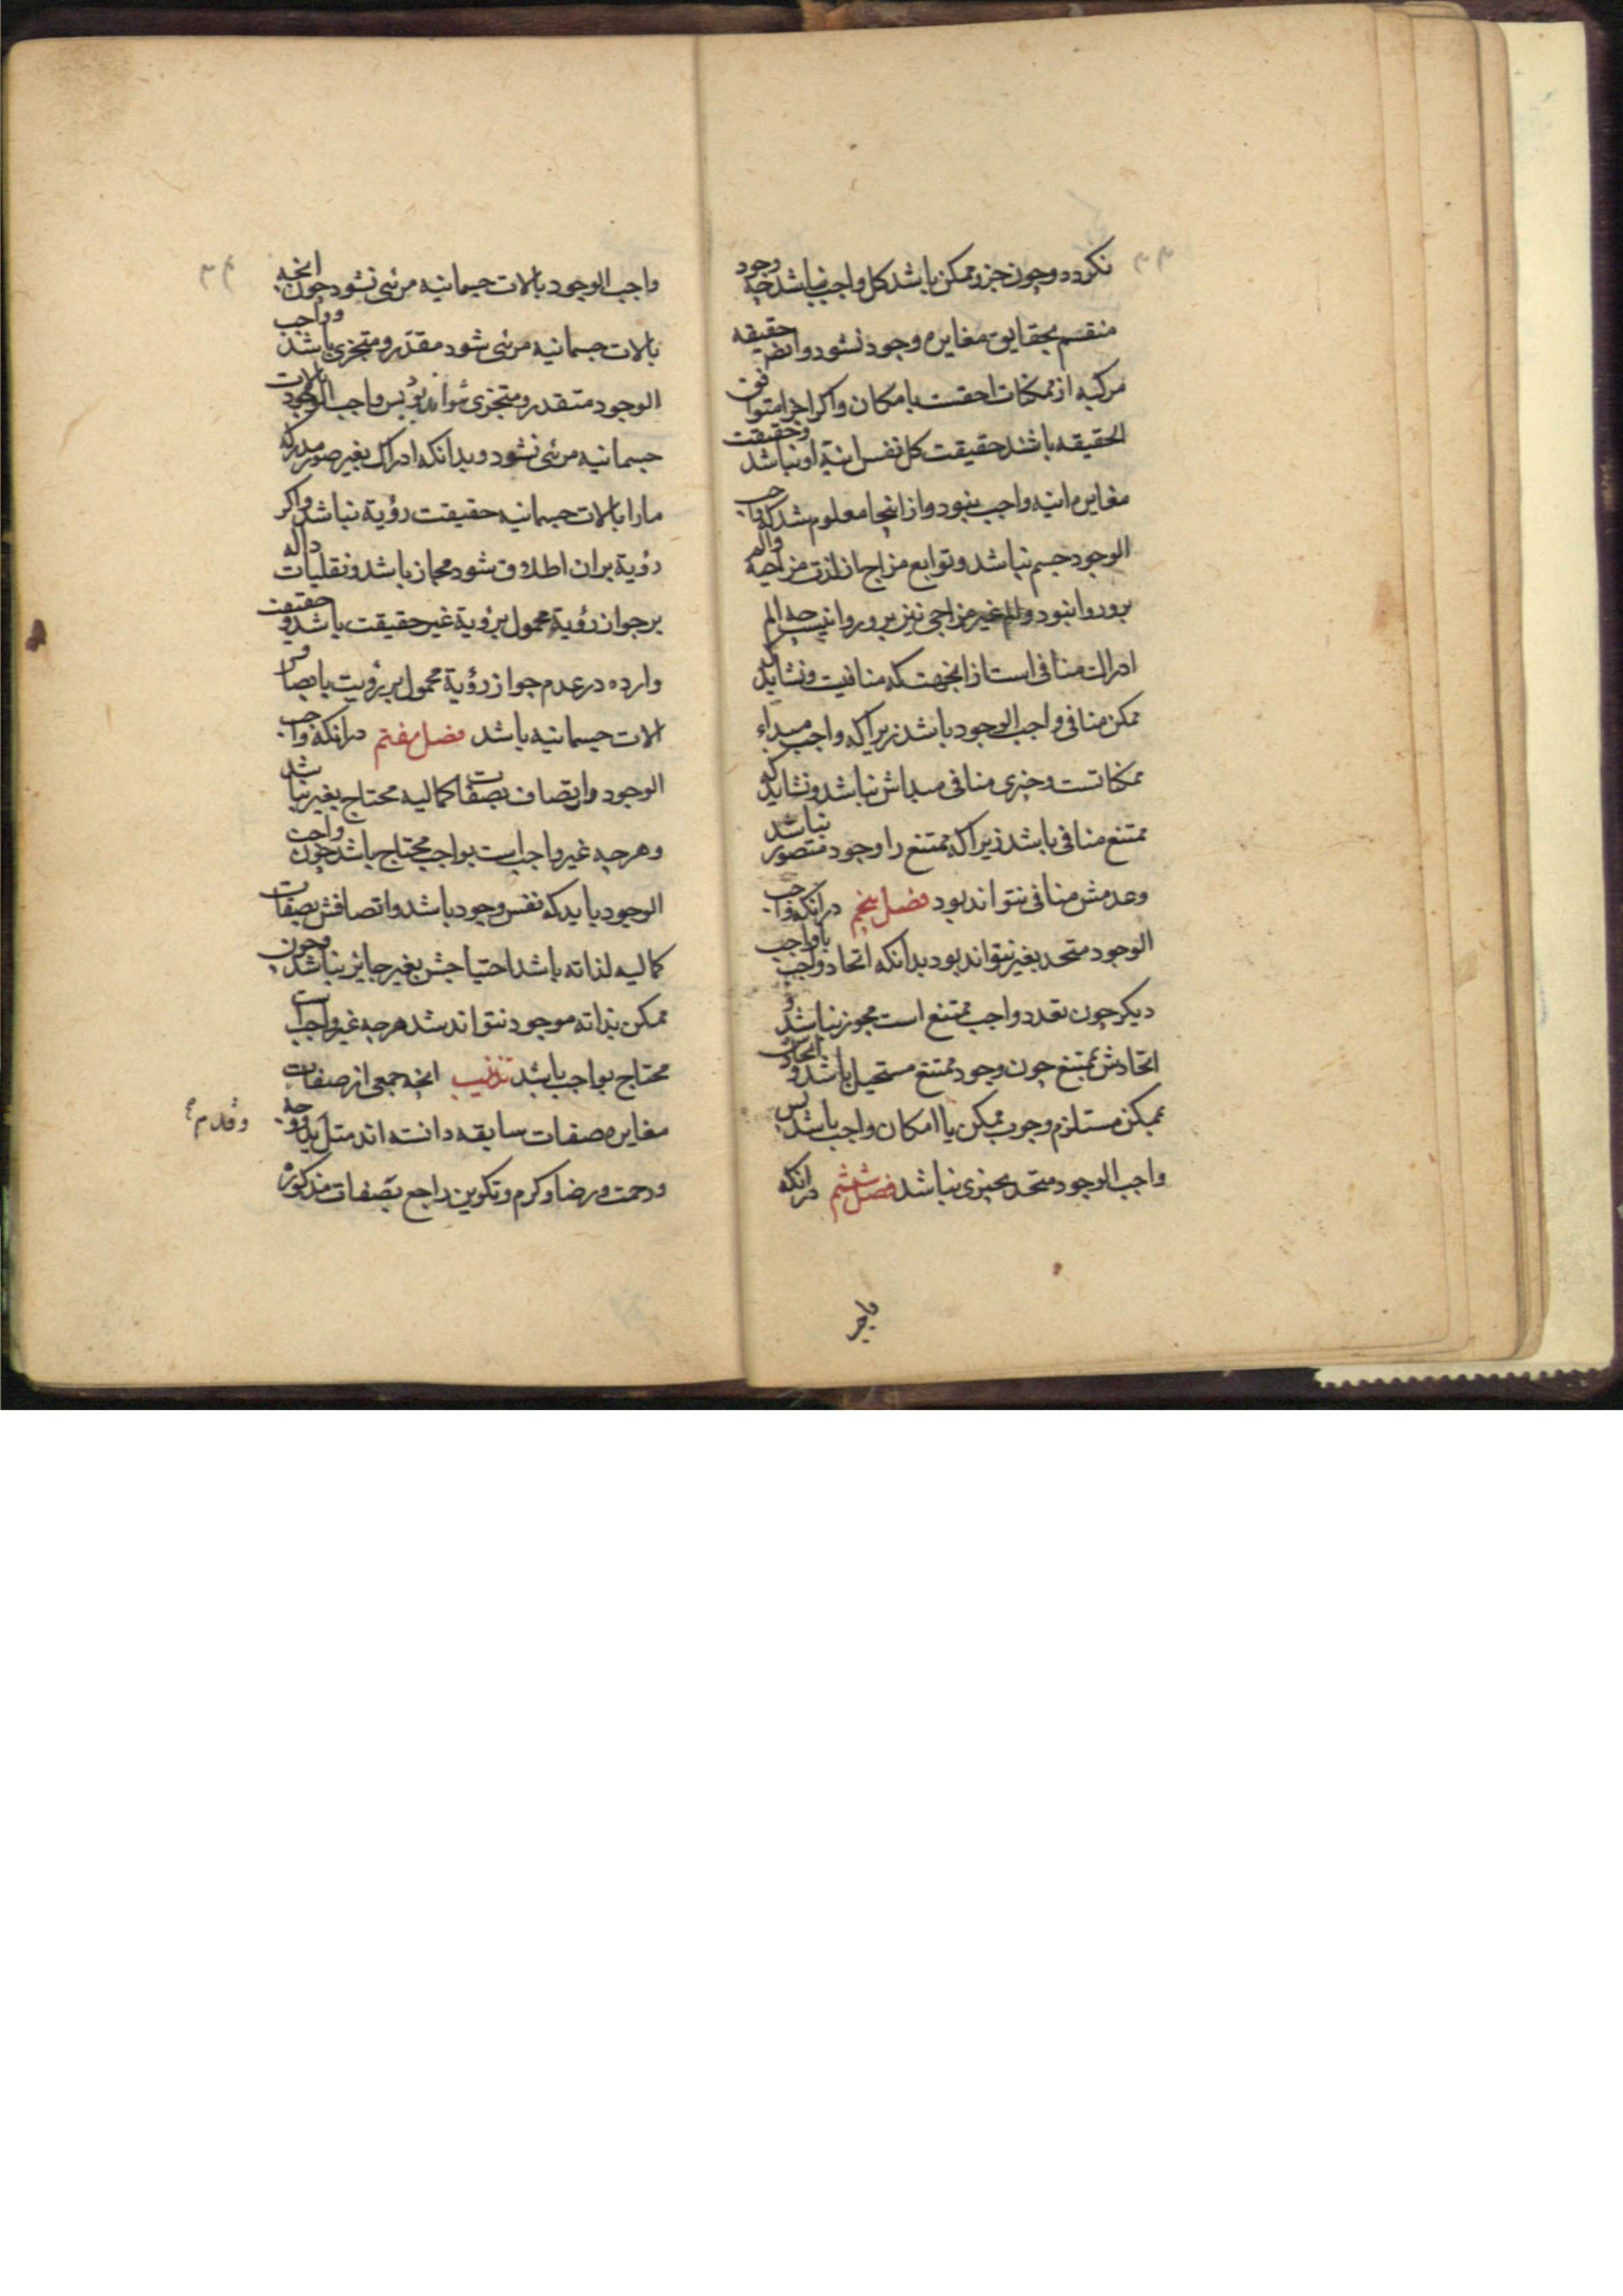 ۳۳
نکردد وچون جزو ممکن باشد کل واجب نباشد چه وجود
منقسم بحقایق مغایره وجود نشود وایضا حقیقه
مرکبه از ممکنات احقست بامکان واکر اجزا متوافق
الحقیقه باشند حقیقت کل نفس انیة او نباشد وحقیقت
مغایر انیه واجب نبود واز اینجا معلوم شد که واجب
الوجود جسم نباشد وتوابع مزاج از لذت مزاجیه والم
برو روا نبود والم غیر مزاجی نیز برو روا نیست چه الم
ادراک منافی است از انجهت که منافیت ونشاید که
ممکن منافی واجب الوجود باشد زیرا که واجب مبداء
ممکناتست وچیزی منافی مبداش نباشد ونشاید که
ممتنع منافی باشد زیرا که ممتنع را وجود متصور نباشد
وعدمش منافی نتواند بود فصل پنجم در انکه واجب
الوجود متحد بغیر نتواند بود بدانکه اتحاد واجب با واجب
دیکر چون تعدد واجب ممتنع است مجوز نباشد و
اتحادش بممتنع چون وجود ممتنع مستحیل باشد و اتحادش
بممکن مستلزم وجوب ممکن یا امکان واجب باشد پس
واجب الوجود متحد بچیزی نباشد فصل ششم در انکه
۳۴
واجب الوجود بالات جسمانیه مرئی نشود چون انچه
بالات جسمانیه مرئی شود مقدر ومتجزی باشد وواجب
الوجود متقدر ومتجزی نتواند بود پس واجب الوجود بالات
جسمانیه مرئی نشود وبدانکه ادراک بغیر صور مدرکه
مارا بالات جسمانیه حقیقت رؤیة نباشد واکر
رؤیة بران اطلاق شود مجاز باشد ونقلیات داله
بر جواز رؤیة محمول برؤیة غیر حقیقت باشد و حقیقت
وارده در عدم جواز رؤیة محمول بر رؤیت بابصار
الات جسمانیه باشد فصل هفتم در انکه واجب
الوجود واتصاف بصفات کمالیه محتاج بغیر نباشد
وهرچه غیر واجب است بواجب محتاج باشد چون واجب
الوجود باید که نفس وجود باشد واتصافش بصفات
کمالیه لذاته باشد احتیاجش بغیر جایز نباشد وچون
ممکن بذاته موجود نتواند شد هرچه غیر واجب است
محتاج بواجب باشد تذنیب انچه جمعی از صفات
مغایره صفات سابقه دانسته اند مثل ید ووجه
وقدم
ورحمت ورضا وکرم وتکوین راجع بصفات مذکوره